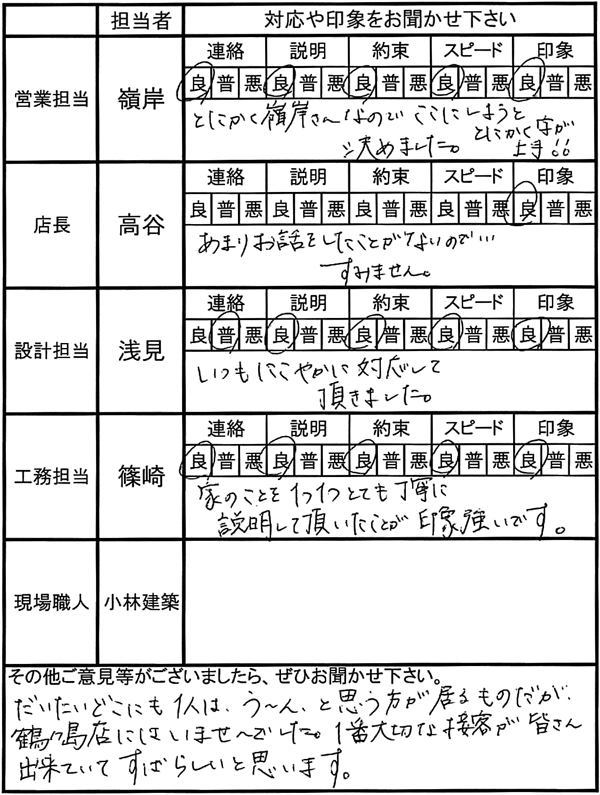 担当者 対応や印象をお聞かせ下さい
連絡 説明 約束 スピード 印象
営業担当 嶺岸 良 普 悪 良 普 悪 良 普 悪 良 普 悪 良 普 悪
とにかく嶺岸さんなので ここにしようと
決めました。 とにかく字が
上手!!
連絡 説明 約束 スピード 印象
店長 高谷 良 普 悪 良 普 悪 良 普 悪 良 普 悪 良 普 悪
あまりお話をしたことがないので…
すみません。
連絡 説明 約束 スピード 印象
設計担当 浅見 良 普 悪 良 普 悪 良 普 悪 良 普 悪 良 普 悪
いつもにこやかに対応して
頂きました。
連絡 説明 約束 スピード 印象
工務担当 篠崎 良 普 悪 良 普 悪 良 普 悪 良 普 悪 良 普 悪
家のことを1つ1つとても丁寧に
説明して頂いたことが印象強いです。
現場職人 小林建築
その他ご意見等がございましたら、ぜひお聞かせ下さい。
だいたいどこにも1人は、う〜ん、と思う方が居るものだが、
鶴ヶ島店にはいませんでした。1番大切な接客が皆さん
出来ていてすばらしいと思います。